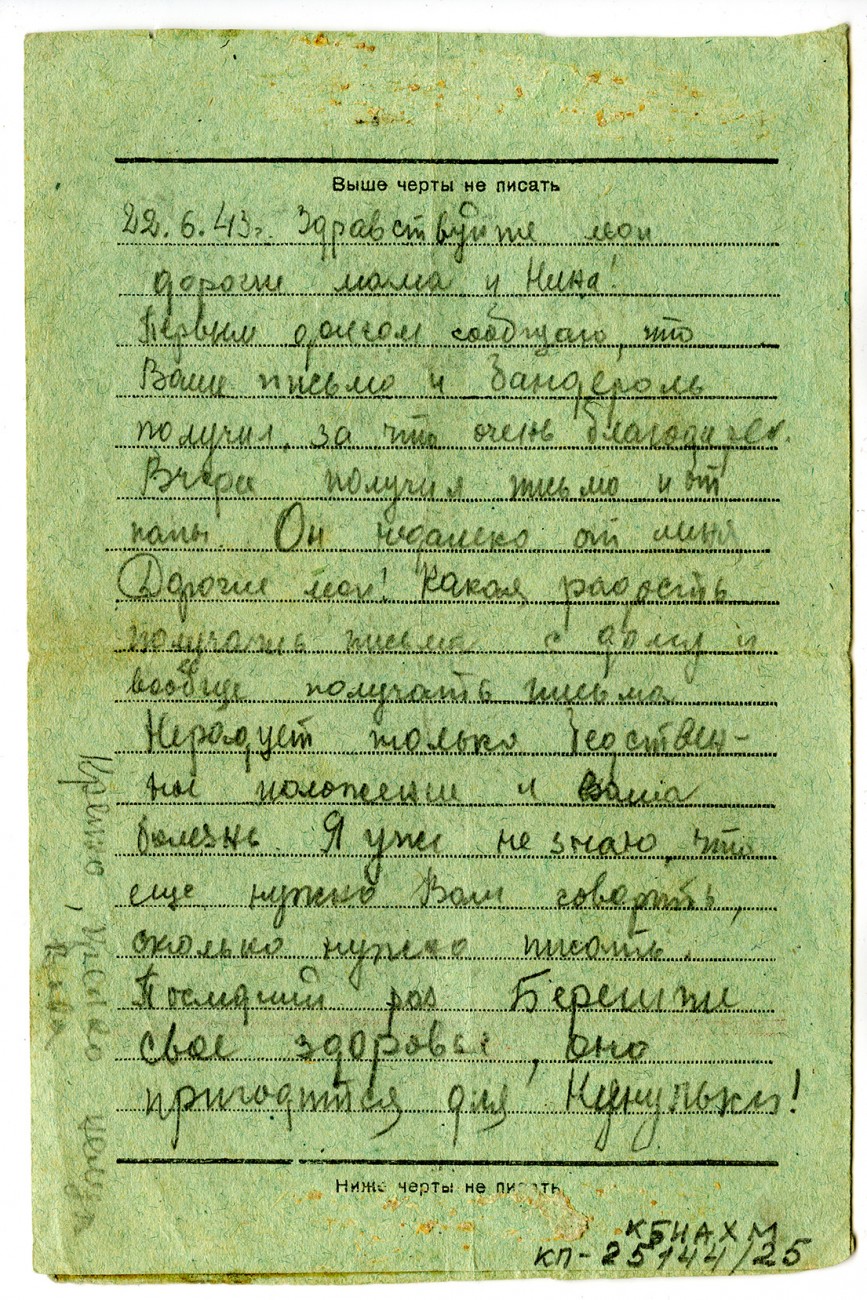 Выше черты не писать
22.6.43г. Здравствуйте мои
дорогие мама и Нина!
Первым долгом сообщаю, что
Ваше письмо и бандероль
получил, за что очень благодарен.
Вчера получил письмо и от
папы. Он недалеко от меня
Дорогие мои! Какая радость
получать письма с дому и
вообще получать письма
Нерадует только бедствен-
ные положение и ваша
болезнь. Я уже не знаю, что
еще нужно Вам говорить,
сколько нужно писать.
Последний раз Берегите
свое здоровье, оно
пригодится для Нинульки!
Крепко, Крепко целую
Вова
Ниже черты не писать
КБИАХМ
КП-25144/25